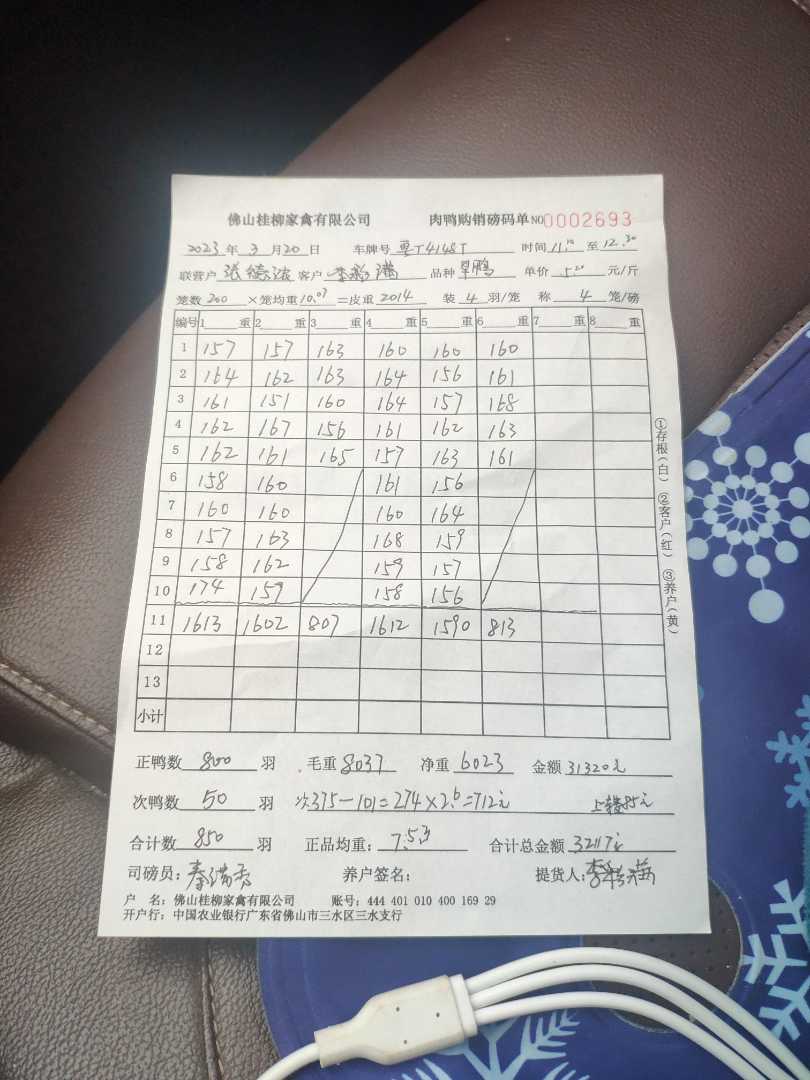 佛山桂柳家禽有限公司 肉鸭购销磅码单 NO 0002693
2023 年 3 月 20 日 车牌号 粤T4148T 时间 11.10 至 12.30
联营户 张德 客户 李 满 品种 单价 5.20 元/斤
笼数 200 ×笼均重 10.07 =皮重 2014 装 4 羽/笼 称 4 笼/磅
编号 1 重 2 重 3 重 4 重 5 重 6 重 7 重 8 重
1 157 157 163 160 160 160
2 164 162 163 164 156 161
3 161 151 160 164 157 168
4 162 167 156 161 162 163
5 162 161 165 157 163 161
6 158 160 161 156
7 160 160 160 164
8 157 163 168 159
9 158 162 159 157
10 174 159 158 156
11 1613 1602 807 1612 1590 813
12
13
小计
①存根(白) ②客户(红) ③养户(黄)
正鸭数 800 羽 毛重 8037 净重 6023 金额 31320元
次鸭数 50 羽 次375-101=274×2.6=712元 上楼85元
合计数 850 羽 正品均重: 7.53 合计总金额 32117元
司磅员: 秦满 养户签名: 提货人: 李 满
户 名: 佛山桂柳家禽有限公司 账号: 444 401 010 400 169 29
开户行: 中国农业银行广东省佛山市三水区三水支行